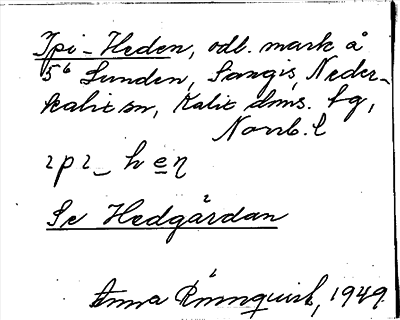 Ipi-Heden, odl. mark å
5⁶ Lunden, Sangis, Neder-
kalix sn, Kalix dms. tg,
Norrb. l
ɩpɩ_ hen̥
Se Hedgårdan
Anna Rönnquist, 1949.